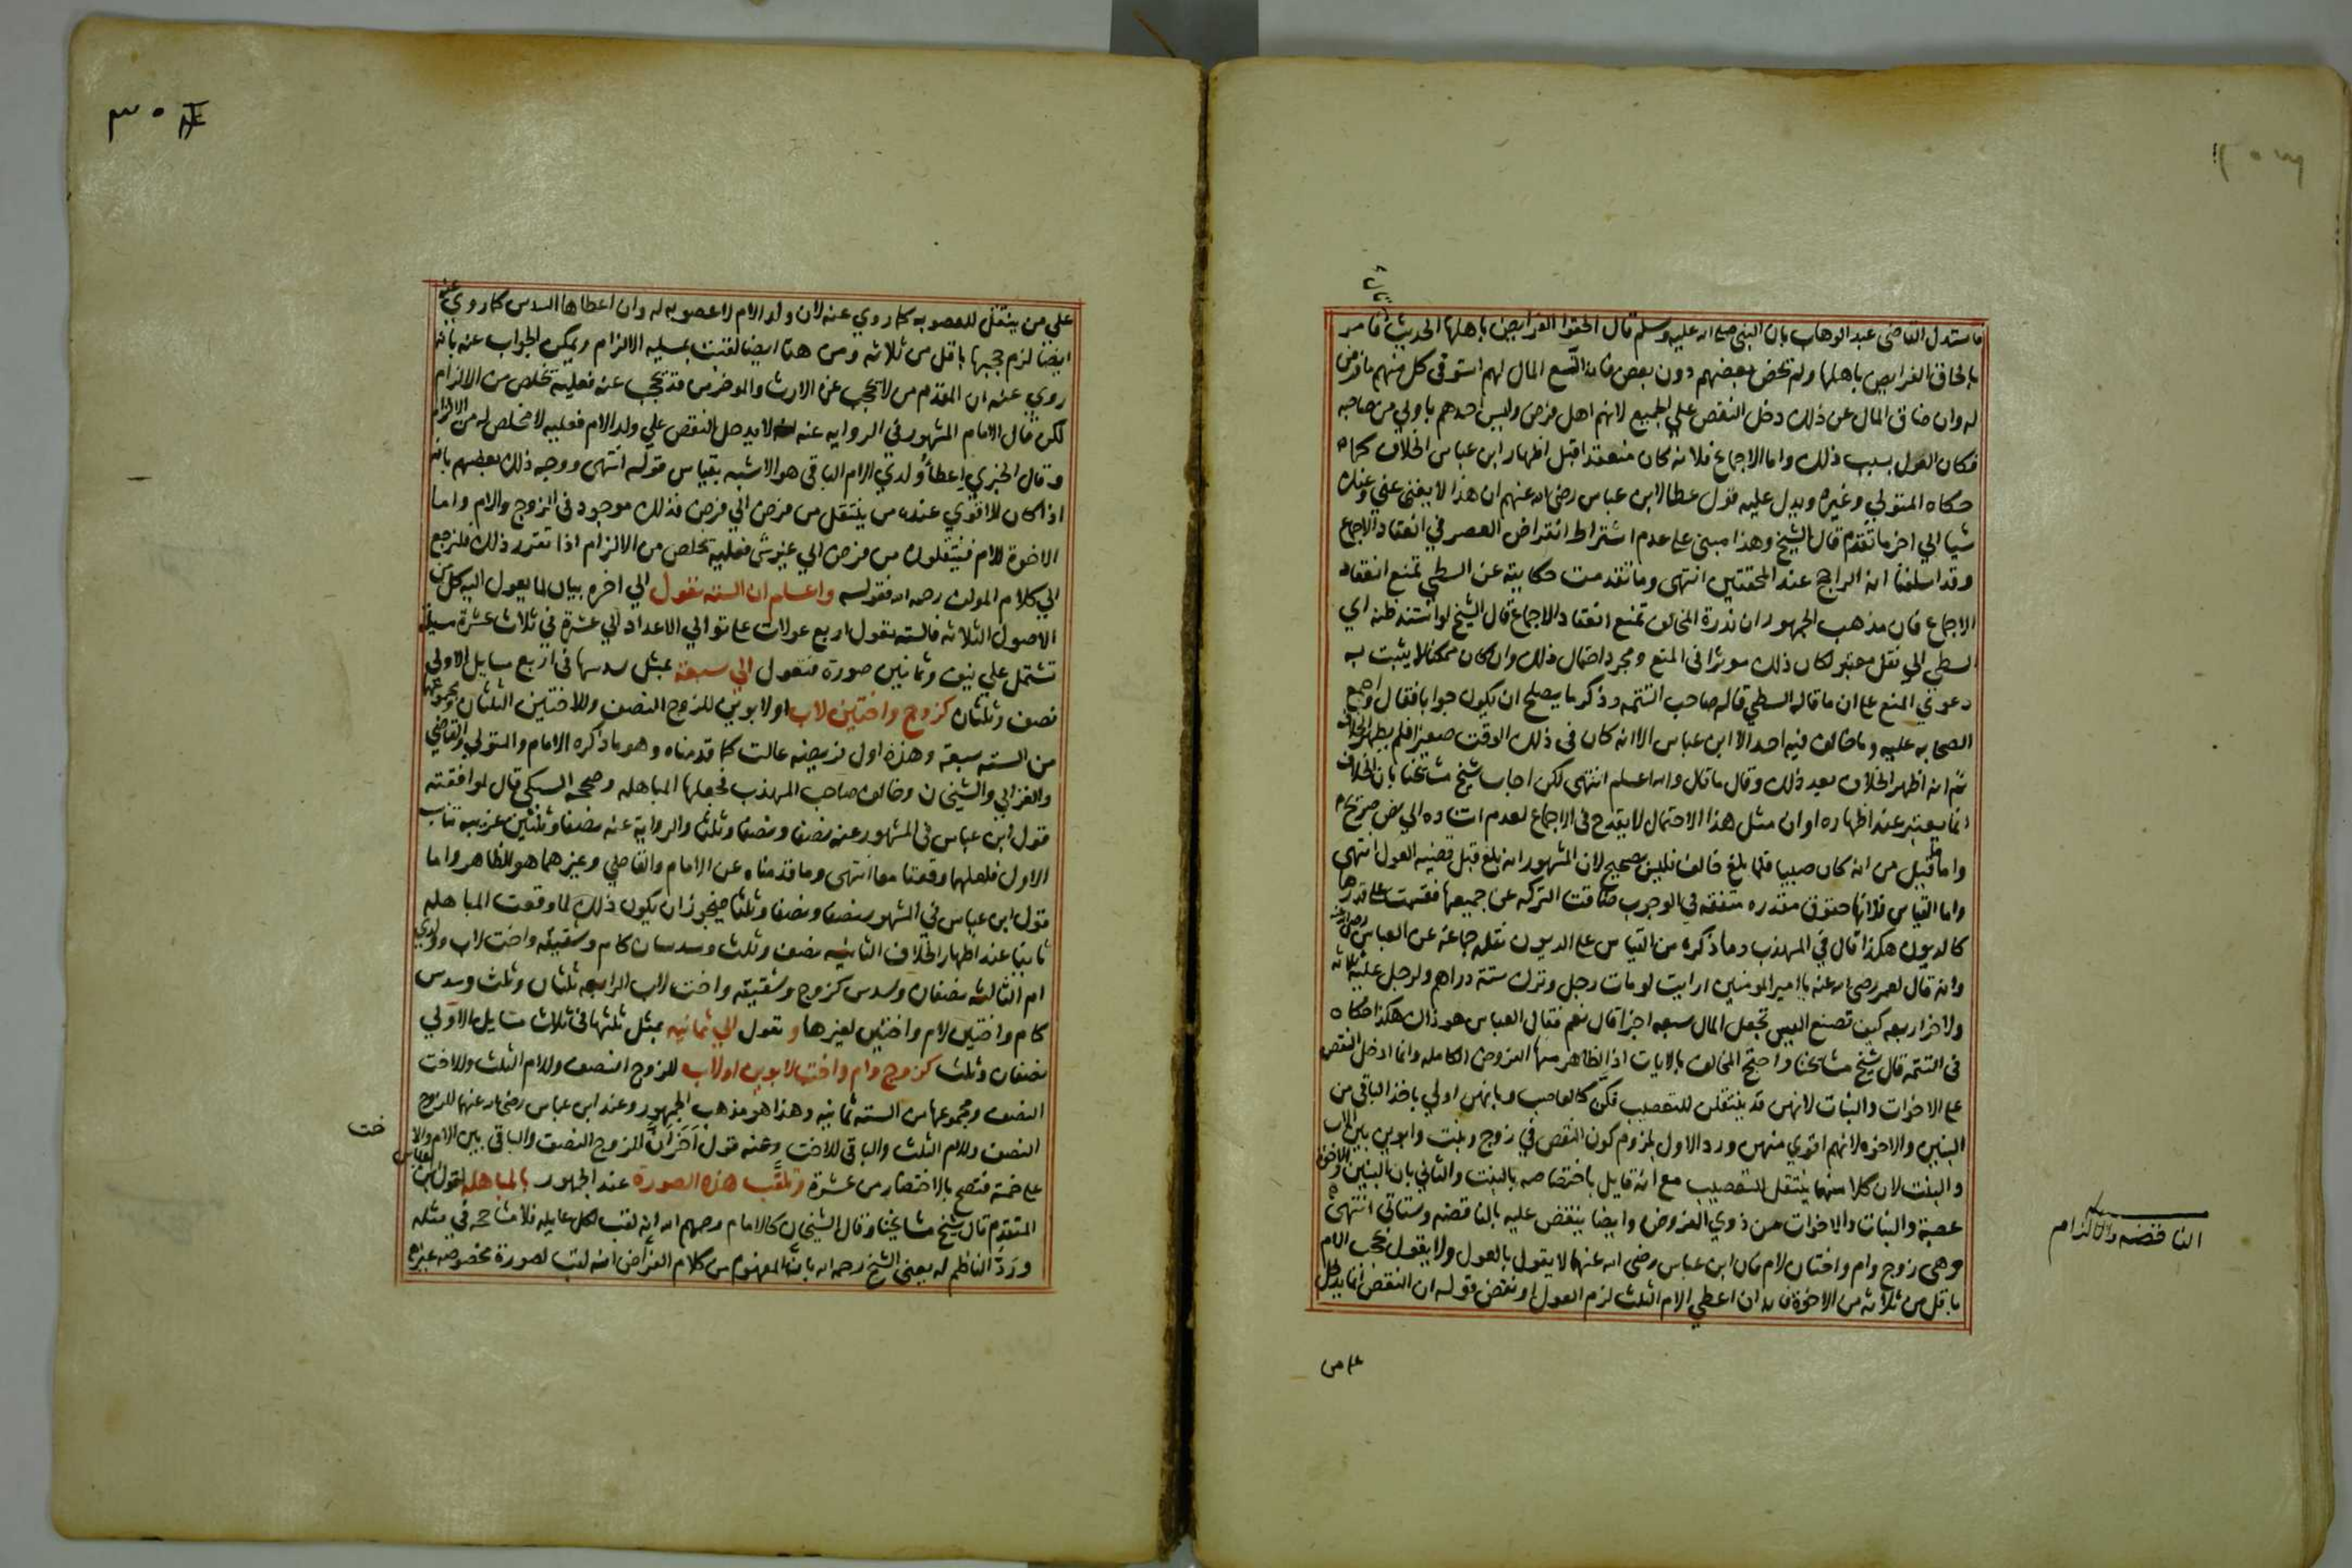 فاستدل القاضي عبد الوهاب بان النبي صلى الله عليه وسلم قال الحقوا الفرايض باهلها الحديث فامر
بالحاق الفرايض باهلها ولم يخص بعضهم دون بعض فان اتسع المال لهم استوفي كل منهم ما فرض
له وان ضاق المال عن ذلك دخل النقص علي الجميع لانهم اهل فرض وليس احدهم باولي من صاحبه
فكان العول بسبب ذلك واما الاجماع فلانه كان منعقدا قبل اظهار ابن عباس الخلاف كما
حكاه المتولي وغيره ويدل عليه قول عطا لابن عباس رضي الله عنهم ان هذا لا يغني عني وعنك
شيا الي اخر ما تقدم قال الشيخ وهذا مبني علي عدم اشتراط انقراض العصر في انعقاد الاجماع
وقد اسلفنا انه الراجح عند المحققين انتهى وما تقدمت حكايته عن السطي تمنع انعقاد
الاجماع فان مذهب الجمهور ان ندرة المخالف تمنع انعقاد الاجماع قال الشيخ لو استند ظنه اي
السطي الي نقل معتبر لكان ذلك موثرا في المنع ومجرد احتمال ذلك وان كان ممكنا لا يثبت به
دعوي المنع علي ان ما قاله السطي قاله صاحب التتمه وذكر ما يصلح ان يكون جوابا فقال اجمع
الصحابه عليه وما خالف فيه احد الا ابن عباس الا انه كان في ذلك الوقت صغيرا فلم يظهر الخلاف
ثم انه اظهر الخلاف بعد ذلك وقال ما قال والله اعلم انتهى لكن اجاب شيخ مشايخنا بان الخلاف
انما يعتبر عند اظهاره او ان مثل هذا الاحتمال لا يقدح في الاجماع لعدم استناده الي نص صريح
واما ما قيل من انه كان صبيا فلما بلغ خالف فليس بصحيح لان المشهور انه بلغ قبل قضيه العول انتهى
واما القياس فلانها حقوق مقدره متفقه في الوجوب ضاقت التركه عن جميعها فقسمت علي قدرها
كالديون هكذا قال في المهذب وما ذكره من القياس علي الديون نقله جماعه عن العباس رضي الله عنه
وانه قال لعمر رضي الله عنه يا امير المومنين ارايت لو مات رجل وترك ستة دراهم ولرجل عليه ثلاثه
ولاخر اربعه كيف تصنع اليس تجعل المال سبعه اجزا قال نعم فقال العباس هو ذاك هكذا حكاه
في التتمه قال شيخ مشايخنا واحتج المخالف بالايات اذ الظاهر منها الفروض الكامله وانما ادخل النقص
علي الاخوات والبنات لانهن قد ينتقلن للتعصيب فكن كالعاصب وبانهن اولي باخذ الباقي من
البنين والاخوه لانهم اقوي منهن ورد الاول بلزوم كون النقص في زوج وبنت وابوين بين الاب
والبنت لان كلا منهما ينتقل للتعصيب مع انه قايل باختصاصه بالبنت والثاني بان البنين والاخوه
عصبة والبنات والاخوات من ذوي الفروض وايضا ينقض عليه بالناقضه وستاتي انتهى
وهي زوج وام واختان لام فان ابن عباس رضي الله عنهما لا يقول بالعول ولا يقول بحجب الام
باقل من ثلاثه من الاخوة فانه ان اعطي الام الثلث لزم العول او نقض قوله ان النقص انما يدخل
الناقضه والالزام
علي من
علي من ينتقل للعصوبه كما روي عنه لان ولد الام لا عصوبه له وان اعطاها السدس كما روي عنه
ايضا لزم حجبها باقل من ثلاثه ومن هنا ايضا لقبت بمسيله الالزام ويمكن الجواب عنه بانه
روي عنه ان المقدم من لا يحجب عن الارث والموخر من قد يحجب عنه فعليه تخلص من الالزام
لكن قال الامام المشهور في الروايه عنه لا يدخل النقص علي ولد الام فعليه لا مخلص له من الالزام
وقال الخبري اعطاء ولدي الام الباقي هو الاشبه بقياس قوله انتهى ووجه ذلك بعضهم بانه
اذا كان الاقوي عنده من ينتقل من فرض الي فرض فذلك موجود في الزوج والام واما
الاخوة للام فينتقلون من فرض الي غير شي فعليه تخلص من الالزام اذا تقرر ذلك فلنرجع
الي كلام المولف رحمه الله فقوله واعلم ان السته تعول الي اخره بيان لما يعول اليه كل من
الاصول الثلاثه فالسته تعول اربع عولات علي توالي الاعداد الي عشرة في ثلاث عشرة مسيله
تشتمل علي نيف وثمانين صورة فتعول الي سبعة بمثل سدسها في اربع مسايل الاولي
نصف وثلثان كزوج واختين لاب او لابوين للزوج النصف وللاختين الثلثان ومجموعهما
من السته سبعة وهذه اول فريضه عالت كما قدمناه وهو ما ذكره الامام والمتولي والقاضي
والغزالي والشيخان وخالف صاحب المهذب فجعلها المباهله وصححه السبكي قال لموافقته
قول ابن عباس في المشهور عنه نصفا ونصفا وثلثا والرواية عنه نصفا وثلثين غريبه تناسب
الاول فلعلهما وقعتا معا انتهى وما قدمناه عن الامام والقاضي وغيرهما هو الظاهر واما
قول ابن عباس في المشهور نصفا ونصفا وثلثا فيجوز ان يكون ذلك لما وقعت المباهله
ثانيا عند اظهار الخلاف الثانيه نصف وثلث وسدسان كام وشقيقه واخت لاب وولدي
ام الثالثه نصفان وسدس كزوج وشقيقه واخت لاب الرابعه ثلثان وثلث وسدس
كام واختين لام واختين لغيرها وتعول الي ثمانيه بمثل ثلثها في ثلاث مسايل الاولي
نصفان وثلث كزوج وام واخت لابوين او لاب للزوج النصف وللام الثلث وللاخت
النصف ومجموعها من السته ثمانيه وهذا هو مذهب الجمهور وعند ابن عباس رضي الله عنهما للزوج
النصف وللام الثلث والباقي للاخت وعنه قول اخر ان للزوج النصف والباقي بين الام والاخت
علي خمسة فتصح بالاختصار من عشرة وتلقب هذه الصورة عند الجمهور بالمباهله لقول ابن عباس
المتقدم قال شيخ مشايخنا وقال الشيخان كالامام رحمهم الله انه لقب لكل عايله فلا مشاححه في مثله
ورد الناظم له يعني الشيخ رحمه الله بان المفهوم من كلام الفراض انه لقب لصورة مخصوصه غيره